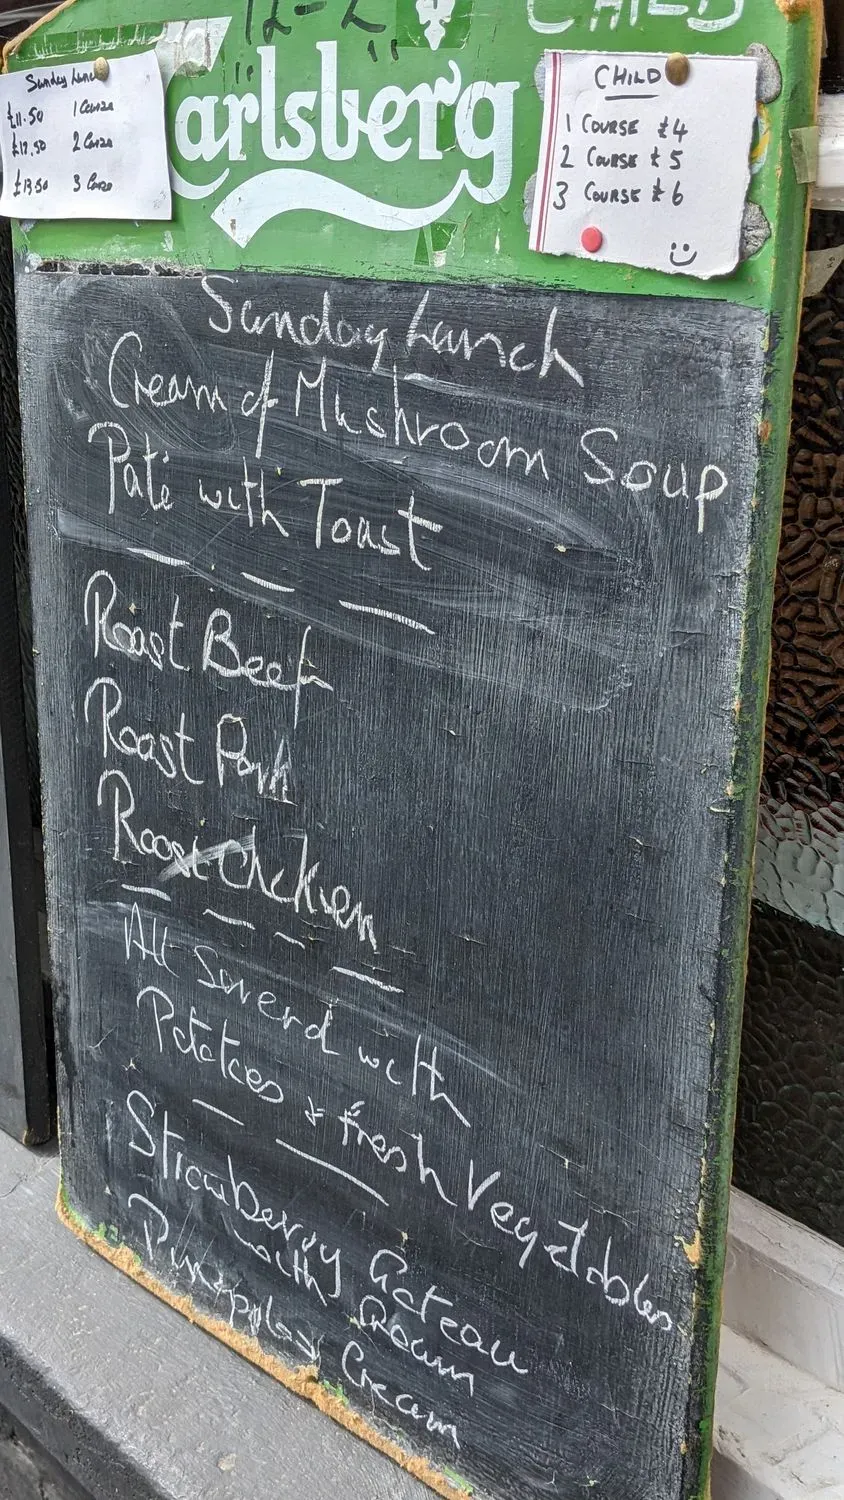 12-2
CHILD
Carlsberg
Sunday Lunch
£11.50 1 Course
£12.50 2 Course
£13.50 3 Course
CHILD
1 COURSE £4
2 COURSE £5
3 COURSE £6
Sunday Lunch
Cream of Mushroom Soup
Pate with Toast
Roast Beef
Roast Pork
Roast Chicken
All Serverd with
Potatoes & fresh Vegetables
Strawberry Gateau
with Cream
Pineapple & Cream